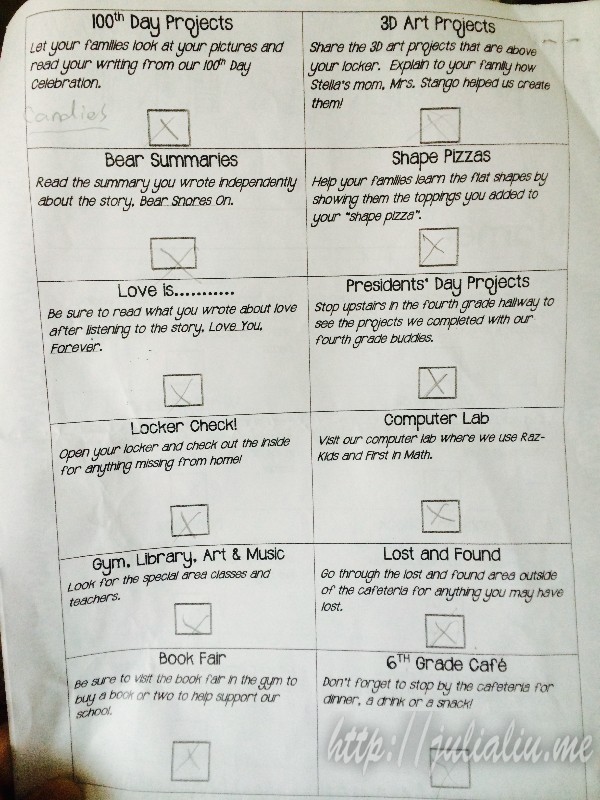 100th Day Projects
Let your families look at your pictures and
read your writing from our 100th Day
Celebration.
Candies
3D Art Projects
Share the 3D art projects that are above
your locker. Explain to your family how
Stella's mom, Mrs. Stango helped us create
them!
Bear Summaries
Read the summary you wrote independently
about the story, Bear Snores On.
Shape Pizzas
Help your families learn the flat shapes by
showing them the toppings you added to
your "shape pizza".
Love is...........
Be sure to read what you wrote about love
after listening to the story, Love You,
Forever.
Presidents' Day Projects
Stop upstairs in the fourth grade hallway to
see the projects we completed with our
fourth grade buddies.
Locker Check!
Open your locker and check out the inside
for anything missing from home!
Computer Lab
Visit our computer lab where we use Raz-
Kids and First in Math.
Gym, Library, Art & Music
Look for the special area classes and
teachers.
Lost and Found
Go through the lost and found area outside
of the cafeteria for anything you may have
lost.
Book Fair
Be sure to visit the book fair in the gym to
buy a book or two to help support our
school.
6TH Grade Café
Don't forget to stop by the cafeteria for
dinner, a drink or a snack!
http://julialiu.me